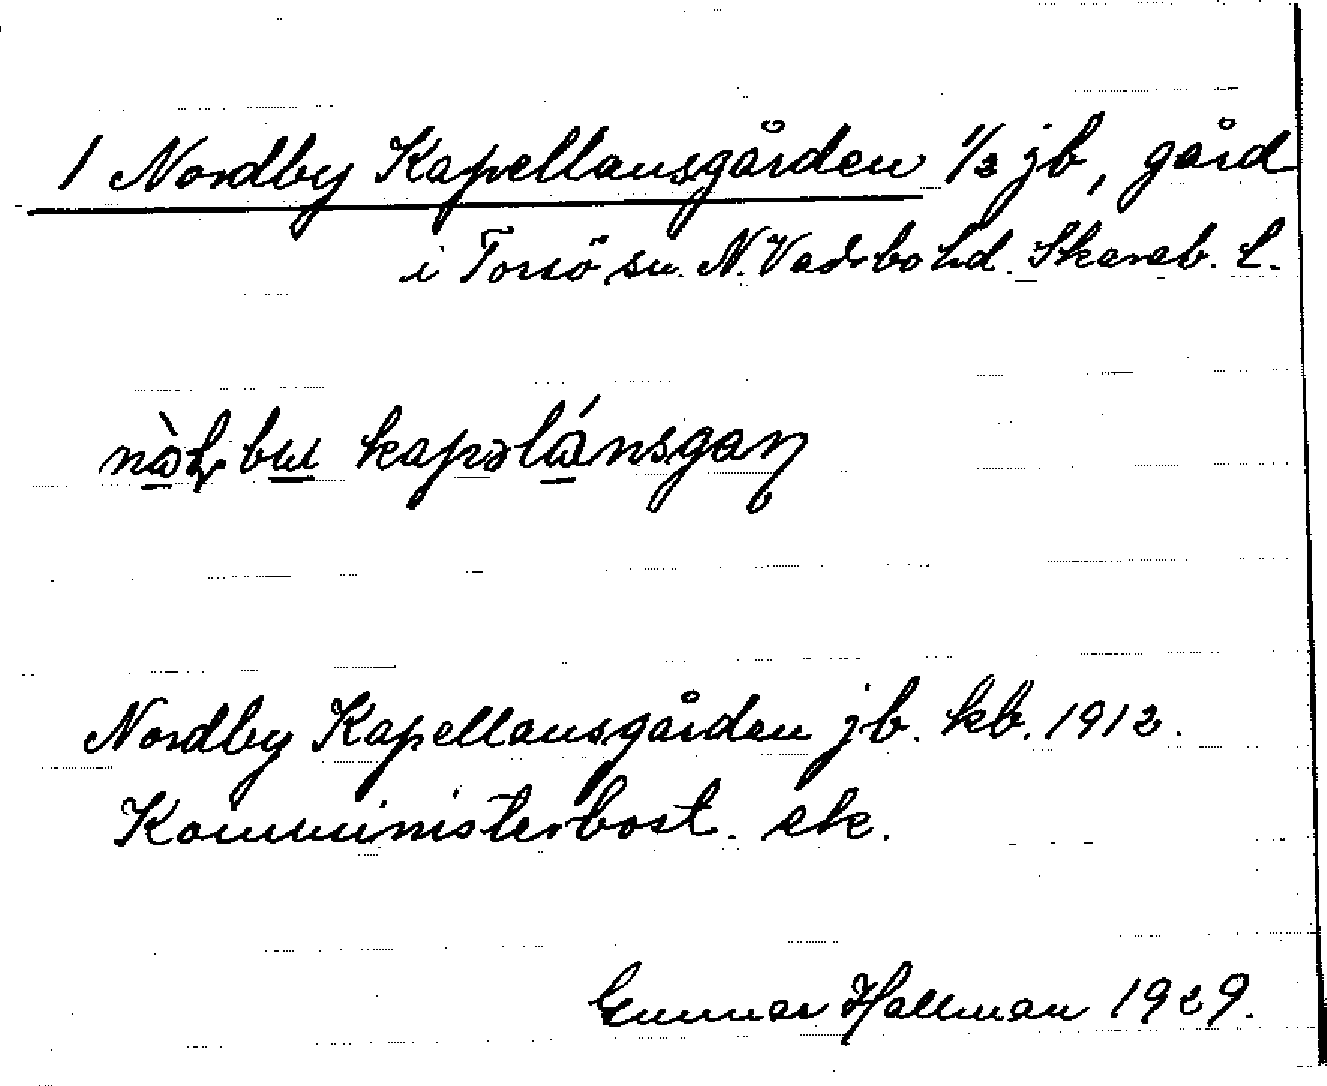 1 Nordby Kapellansgården 1/3 jb, gård
i Torsö sn. N. Vadsbo hd. Skarab. l.
kapəlánsgaɳ
Nordby Kapellansgården jb. kb. 1912.
Kommunisterbost. ek.
Gunnar Hallman 1929.